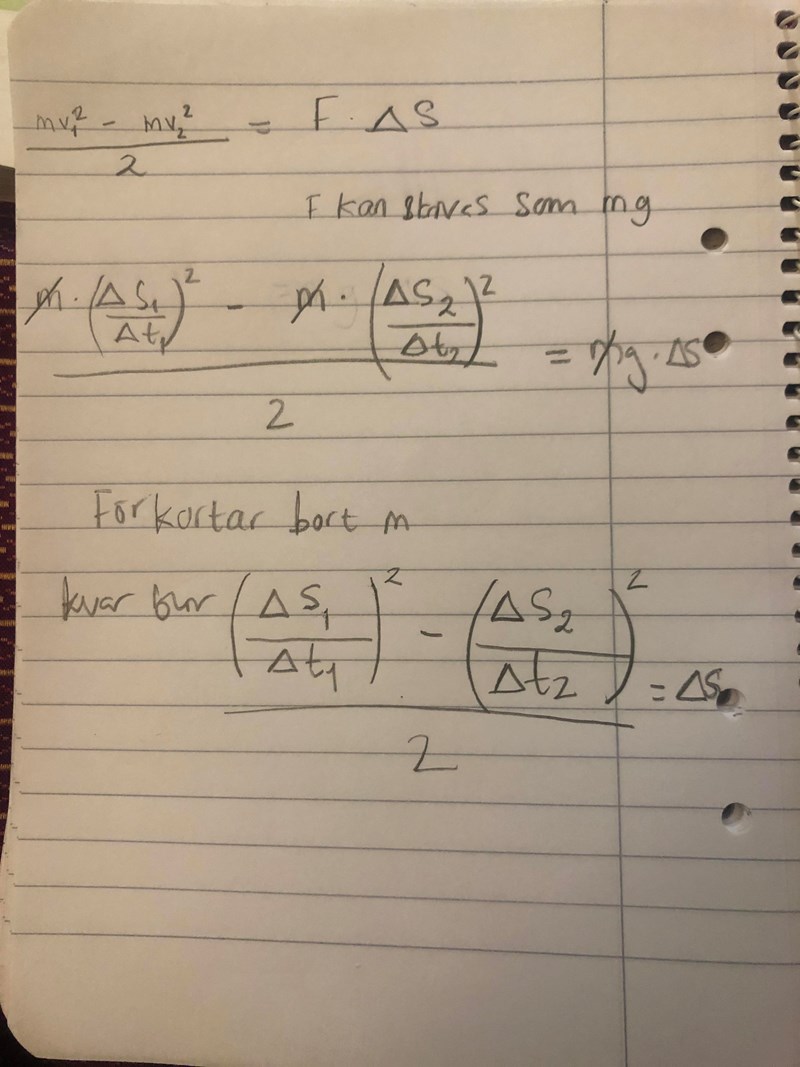 mv₁² - mv₂² / 2 = F · ΔS
F kan skrivas som mg
m · (ΔS₁ / Δt₁)² - m · (ΔS₂ / Δt₂)² / 2 = mg · ΔS
Förkortar bort m
kvar blir (ΔS₁ / Δt₁)² - (ΔS₂ / Δt₂)² / 2 = ΔS